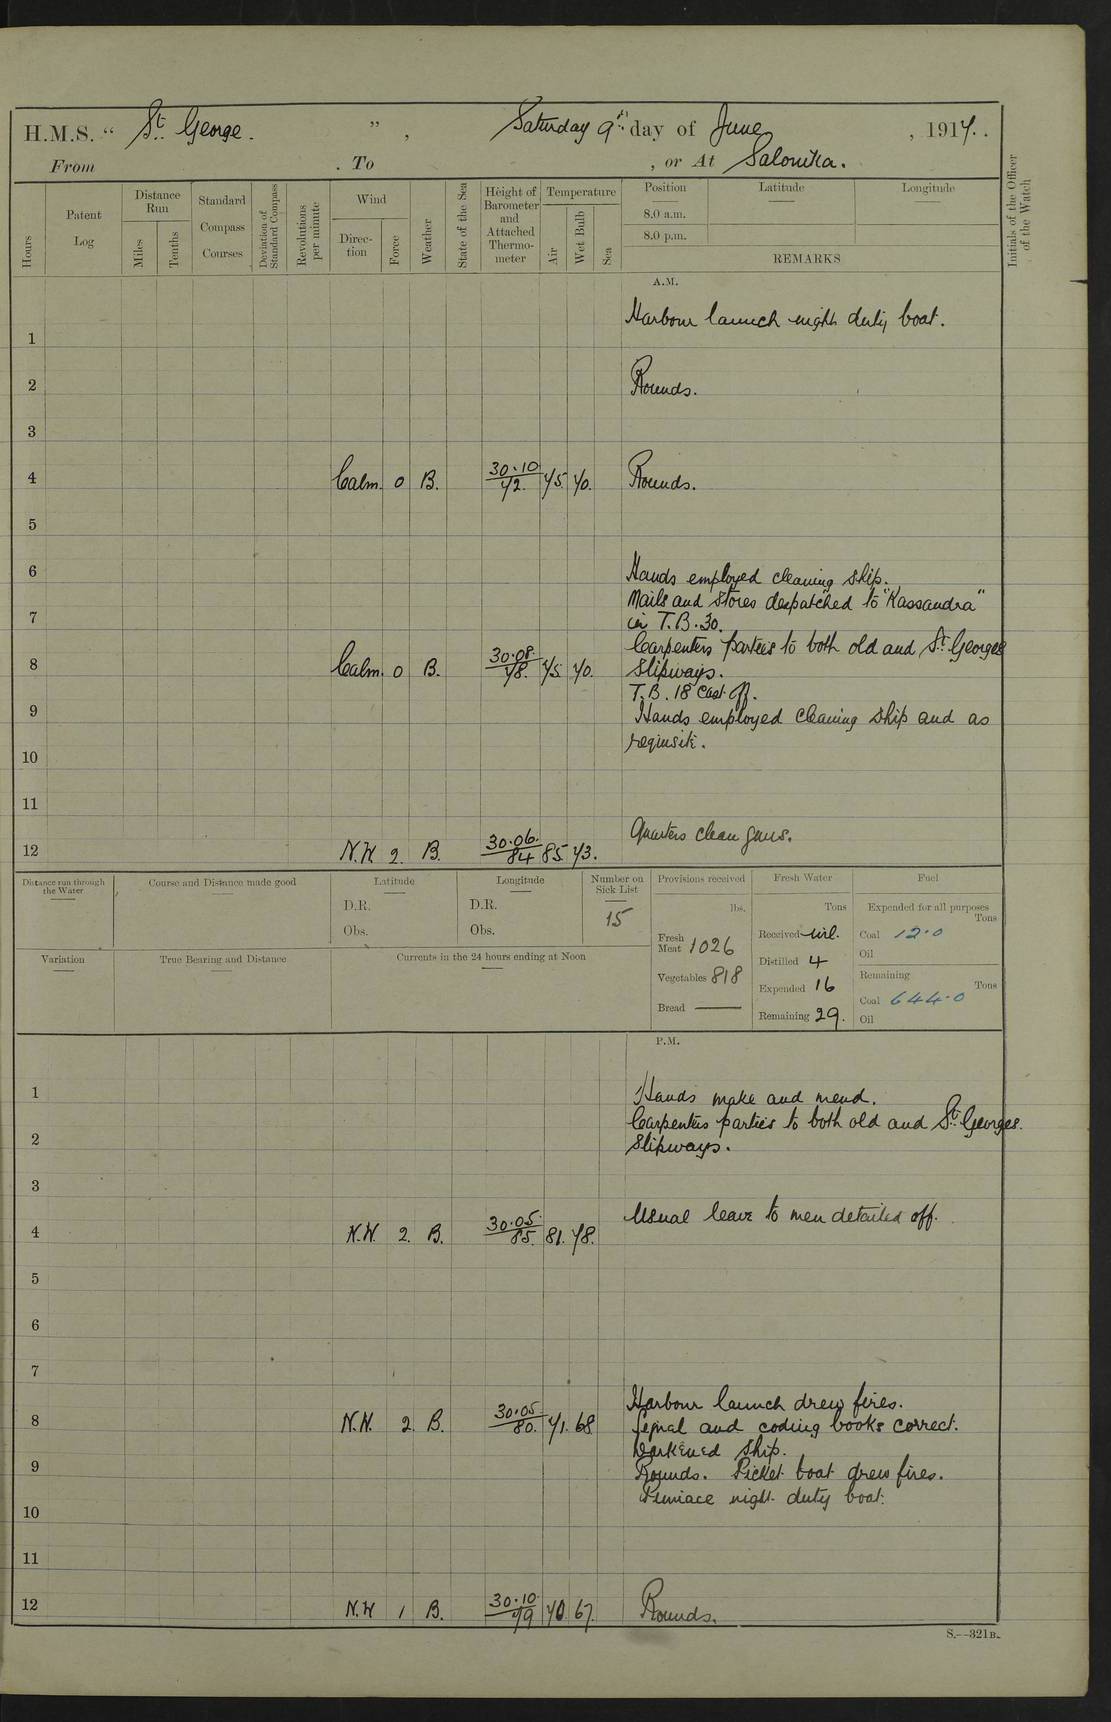 H.M.S. “ St George. ” , Saturday 9th day of June , 1917.
From . To , or At Salonika.
Hours
Patent Log
Distance Run
Miles
Tenths
Standard Compass Courses
Deviation of Standard Compass
Revolutions per minute
Wind
Direction
Force
Weather
State of the Sea
Height of Barometer and Attached Thermometer
Temperature
Air
Wet Bulb
Sea
Position Latitude Longitude
8.0 a.m.
8.0 p.m.
REMARKS
Initials of the Officer of the Watch
A.M.
Harbour launch night duty boat.
1
2 Rounds.
3
4 Calm. 0 B. 30.10 72. 75. 70. Rounds.
5
6 Hands employed cleaning ship.
Mails and stores despatched to "Kassandra"
7 in T.B. 30.
Carpenters parties to both old and St Georges
8 Calm. 0 B. 30.08. 78. 75. 70. Slipways.
T.B. 18 cast off.
9 Hands employed cleaning ship and as
requisite.
10
11
Quarters clean guns.
12 N.W. 2. B. 30.06. 84 85. 73.
Distance run through the Water
Course and Distance made good
Latitude
D.R.
Obs.
Longitude
D.R.
Obs.
Number on Sick List
15
Provisions received
lbs.
Fresh Meat 1026
Vegetables 818
Bread ——
Fresh Water
Tons
Received nil.
Distilled 4
Expended 16
Remaining 29.
Fuel
Expended for all purposes
Tons
Coal 12.0
Oil
Remaining
Tons
Coal 644.0
Oil
Variation
True Bearing and Distance
Currents in the 24 hours ending at Noon
P.M.
1 Hands make and mend.
Carpenters parties to both old and St Georges.
2 Slipways.
3
Usual leave to men detailed off.
4 N.W. 2. B. 30.05. 85. 81. 78.
5
6
7
Harbour launch drew fires.
8 N.W. 2. B. 30.05 80. 71. 68 Signal and coding books correct.
Darkened ship.
9 Rounds. Picket boat drew fires.
Pinnace night duty boat.
10
11
12 N.W 1 B. 30.10. 79 70. 67. Rounds.
S.—321B.